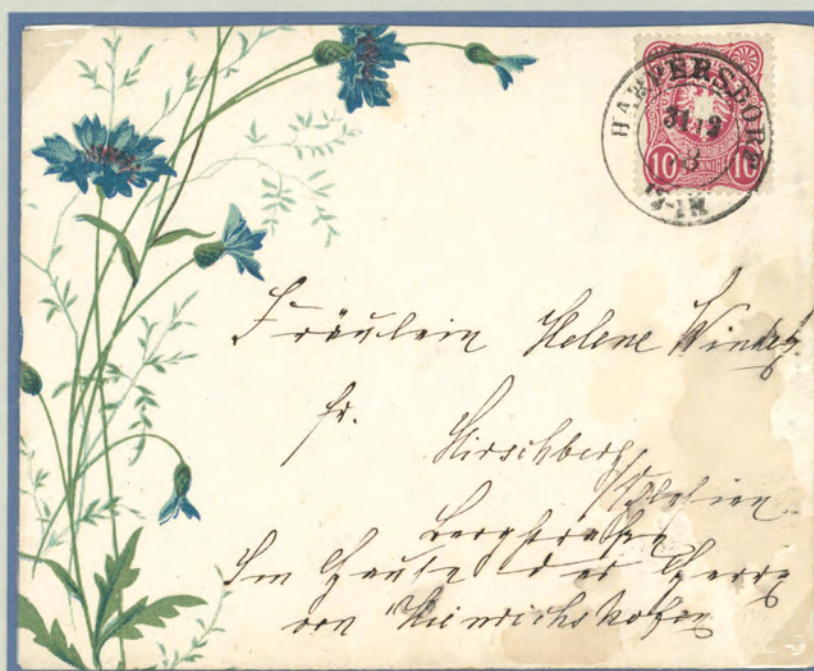 HARPERSDORF
31 12
8
12-1N
10 PFENNIGE 10
Fräulein Helene
fr.
Hirschberg
Schlesien
Bergstraße
Im Hause des Herrn
von Heinrichshofen